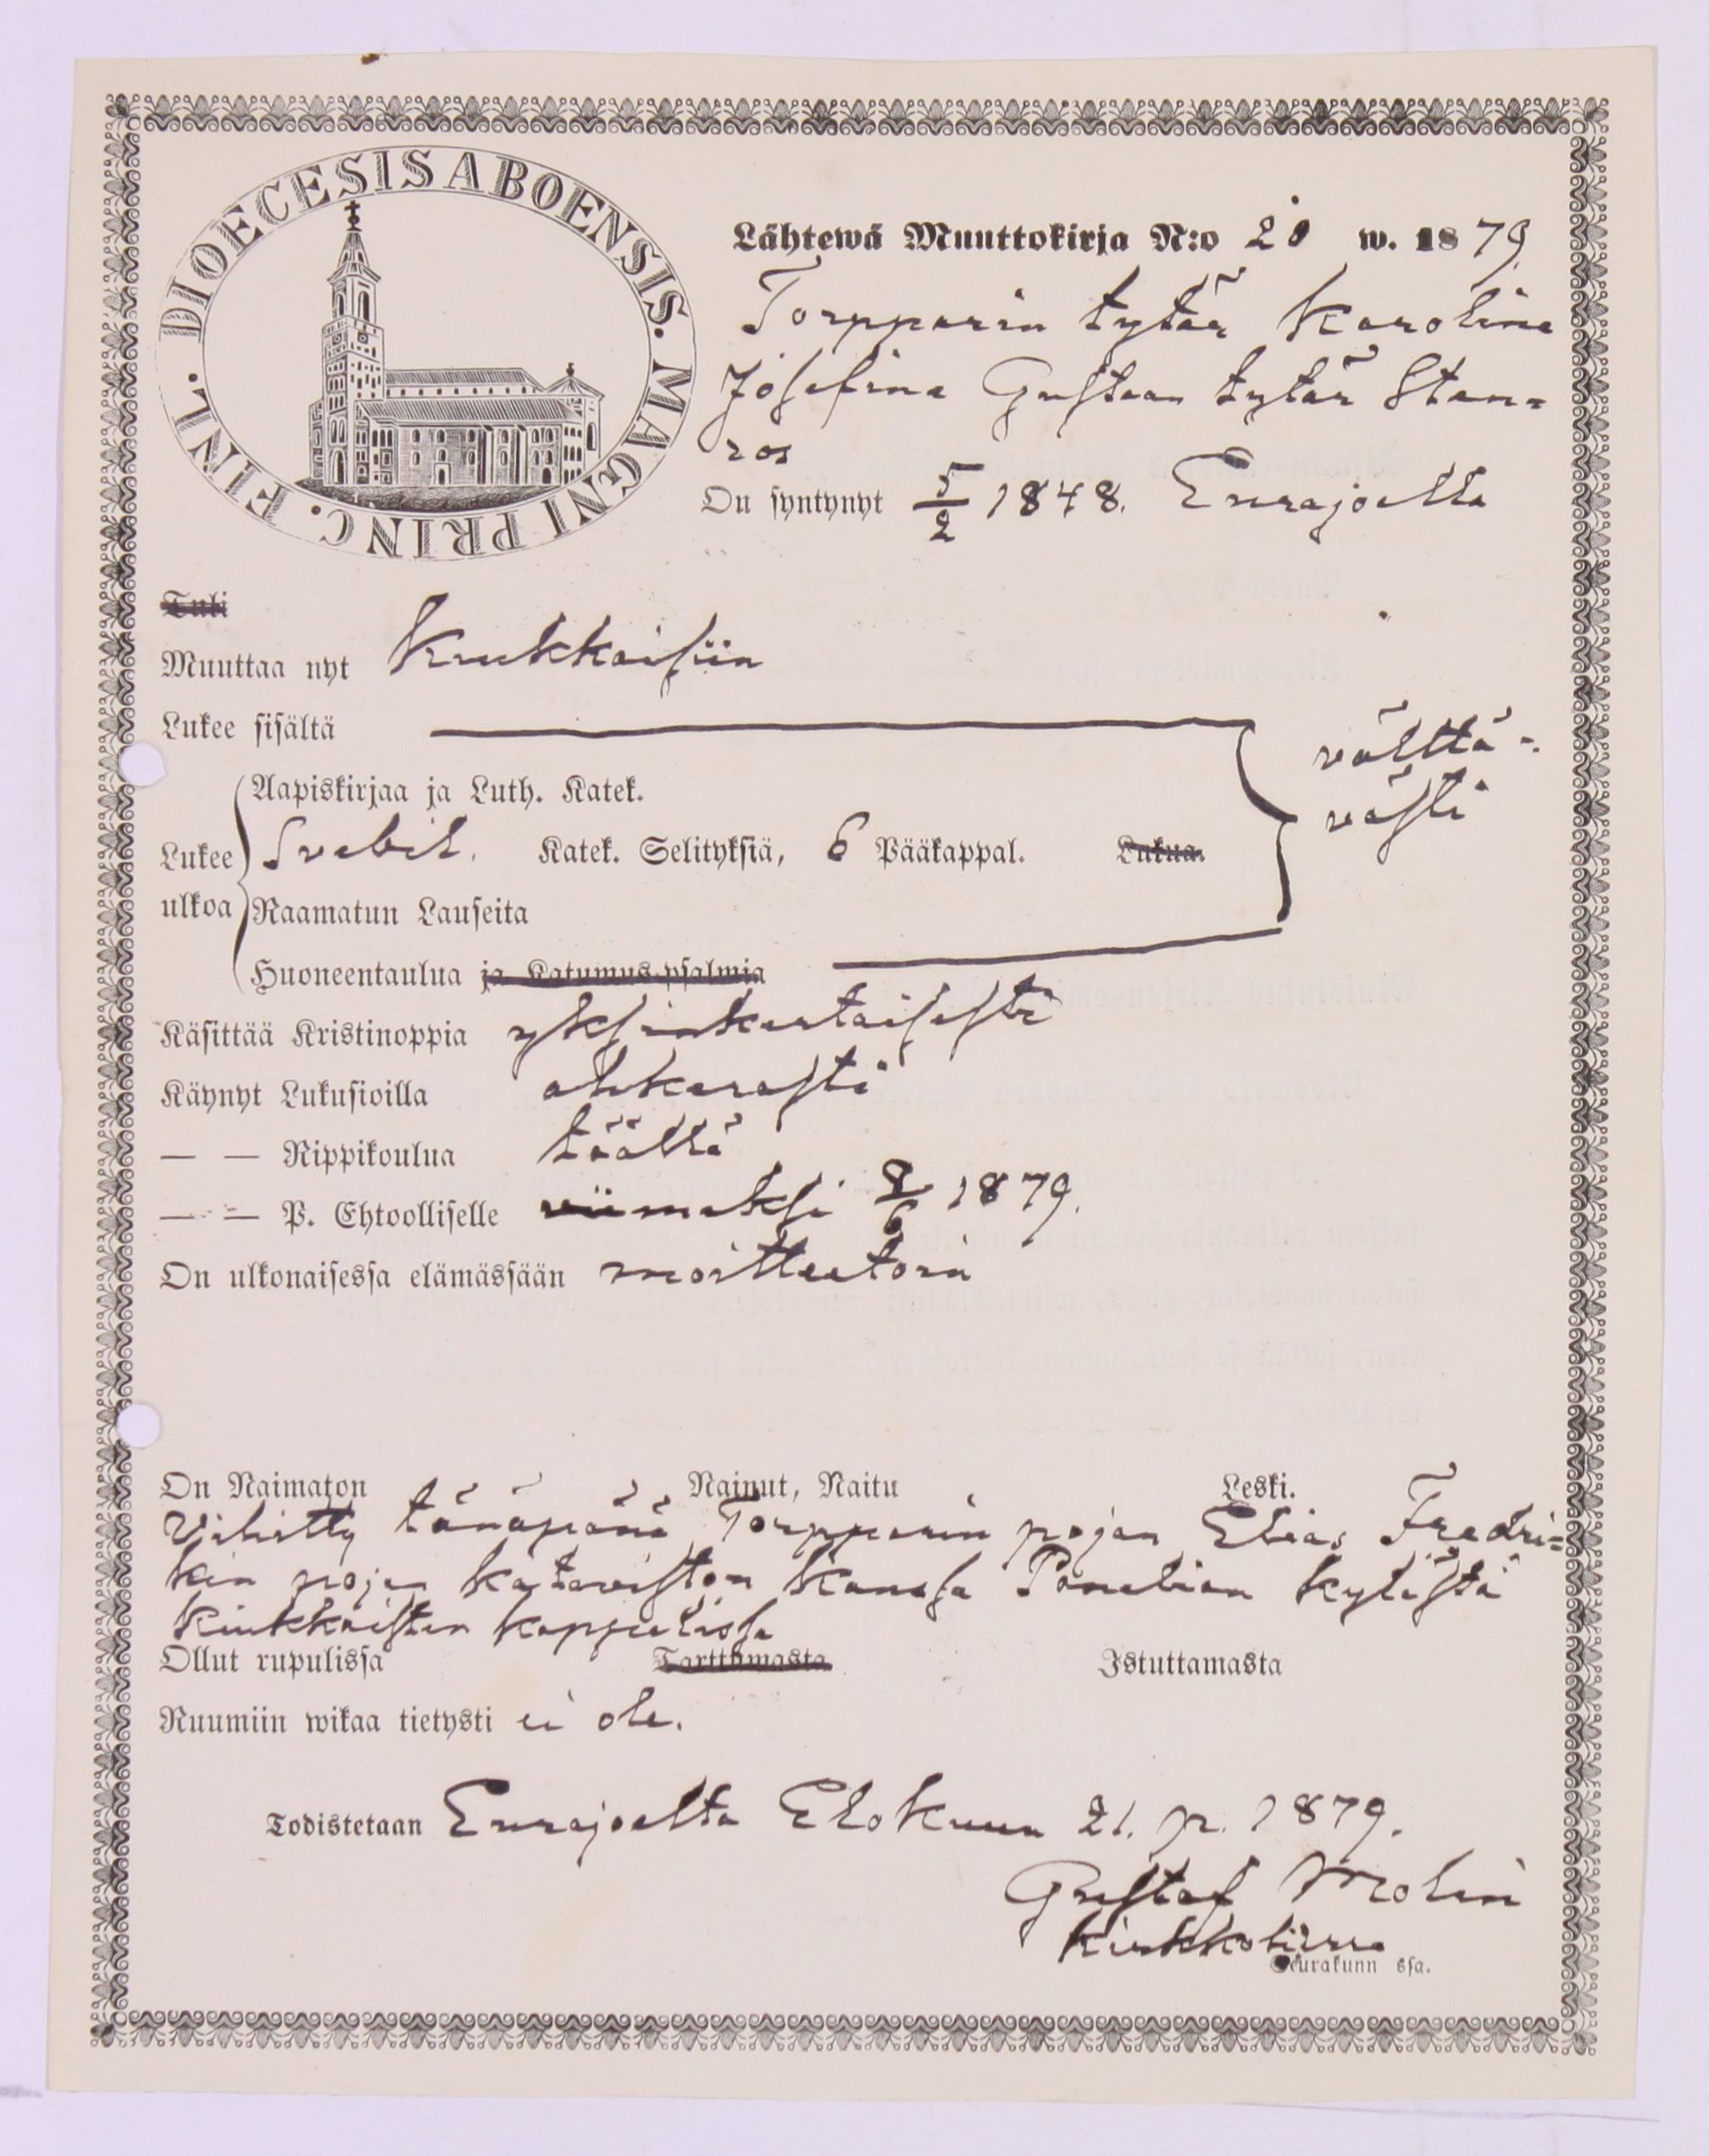 DIOECESIS ABOENSIS. MAGNI PRINC. FINL.
Lähtewä Muuttokirja N:o 20 w. 1879
Torpparin tytär Karolina
Josefina Gustaan tytär Sten=
ros
On syntynyt 5/2 1848. Eurajoella
Tuli
Muuttaa nyt Kiukkaisiin
Lukee sisältä
välttä=
västi
Aapiskirjaa ja Luth. Katek.
Lukee ulkoa Svebil. Katek. Selityksiä, 6 Pääkappal. Lukua.
Raamatun Lauseita
Huoneentaulua ja Katumus-psalmia
Käsittää Kristinoppia yksinkertaisesti
Käynyt Lukusioilla ahkerasti
— — Rippikoulua täällä
— — P. Ehtoolliselle viimeksi 8/6 1879.
On ulkonaisessa elämässään moitteetoin
On Naimaton Nainut, Naitu Leski.
Vihitty tänäpänä Torpparin pojan Elias Fredri=
kin pojan Katawiston kanssa Panelian kylästä
Kiukkaisten kappelissa
Ollut rupulissa Tarttumasta Istuttamasta
Ruumiin wikaa tietysti ei ole.
Todistetaan Eurajoelta Elokuun 21. p. 1879.
Gustaf Molin
Kirkkoherra
Seurakunn ssa.